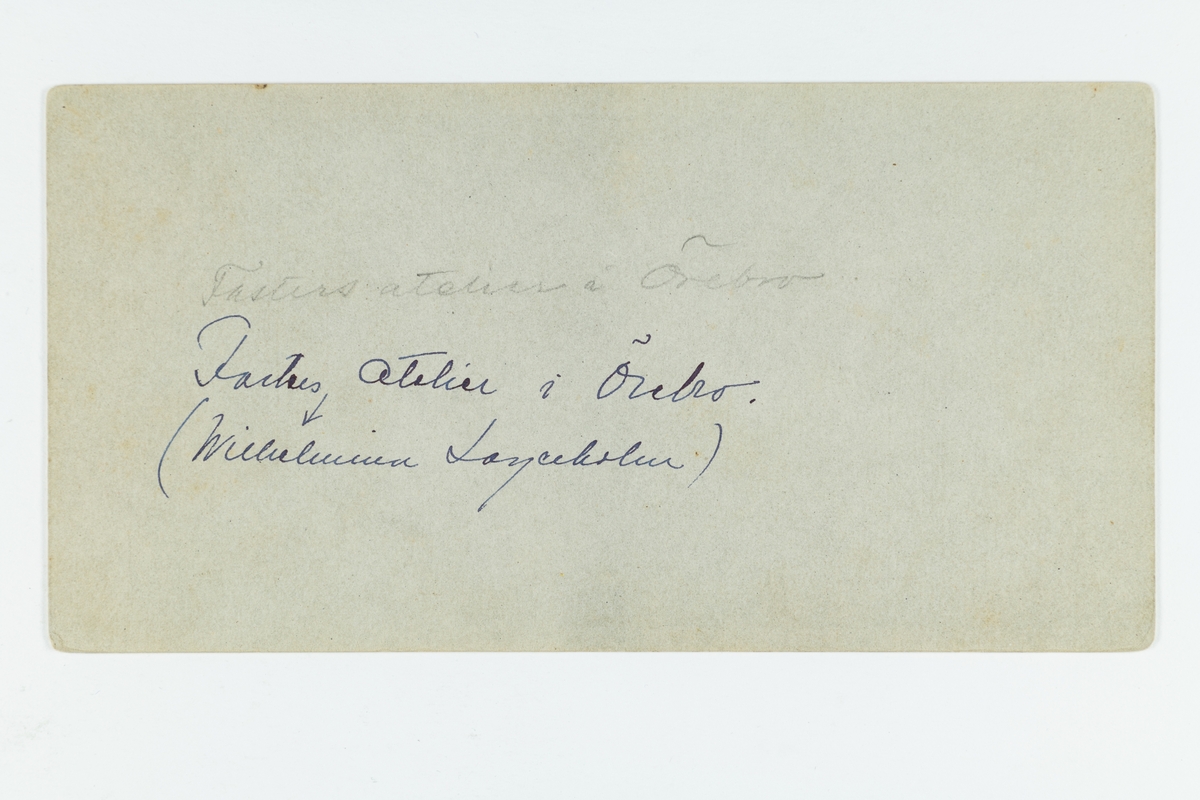 Fasters atelier i Örebro
Fasters atelier i Örebro.
(Wilhelmina Lagerholm)